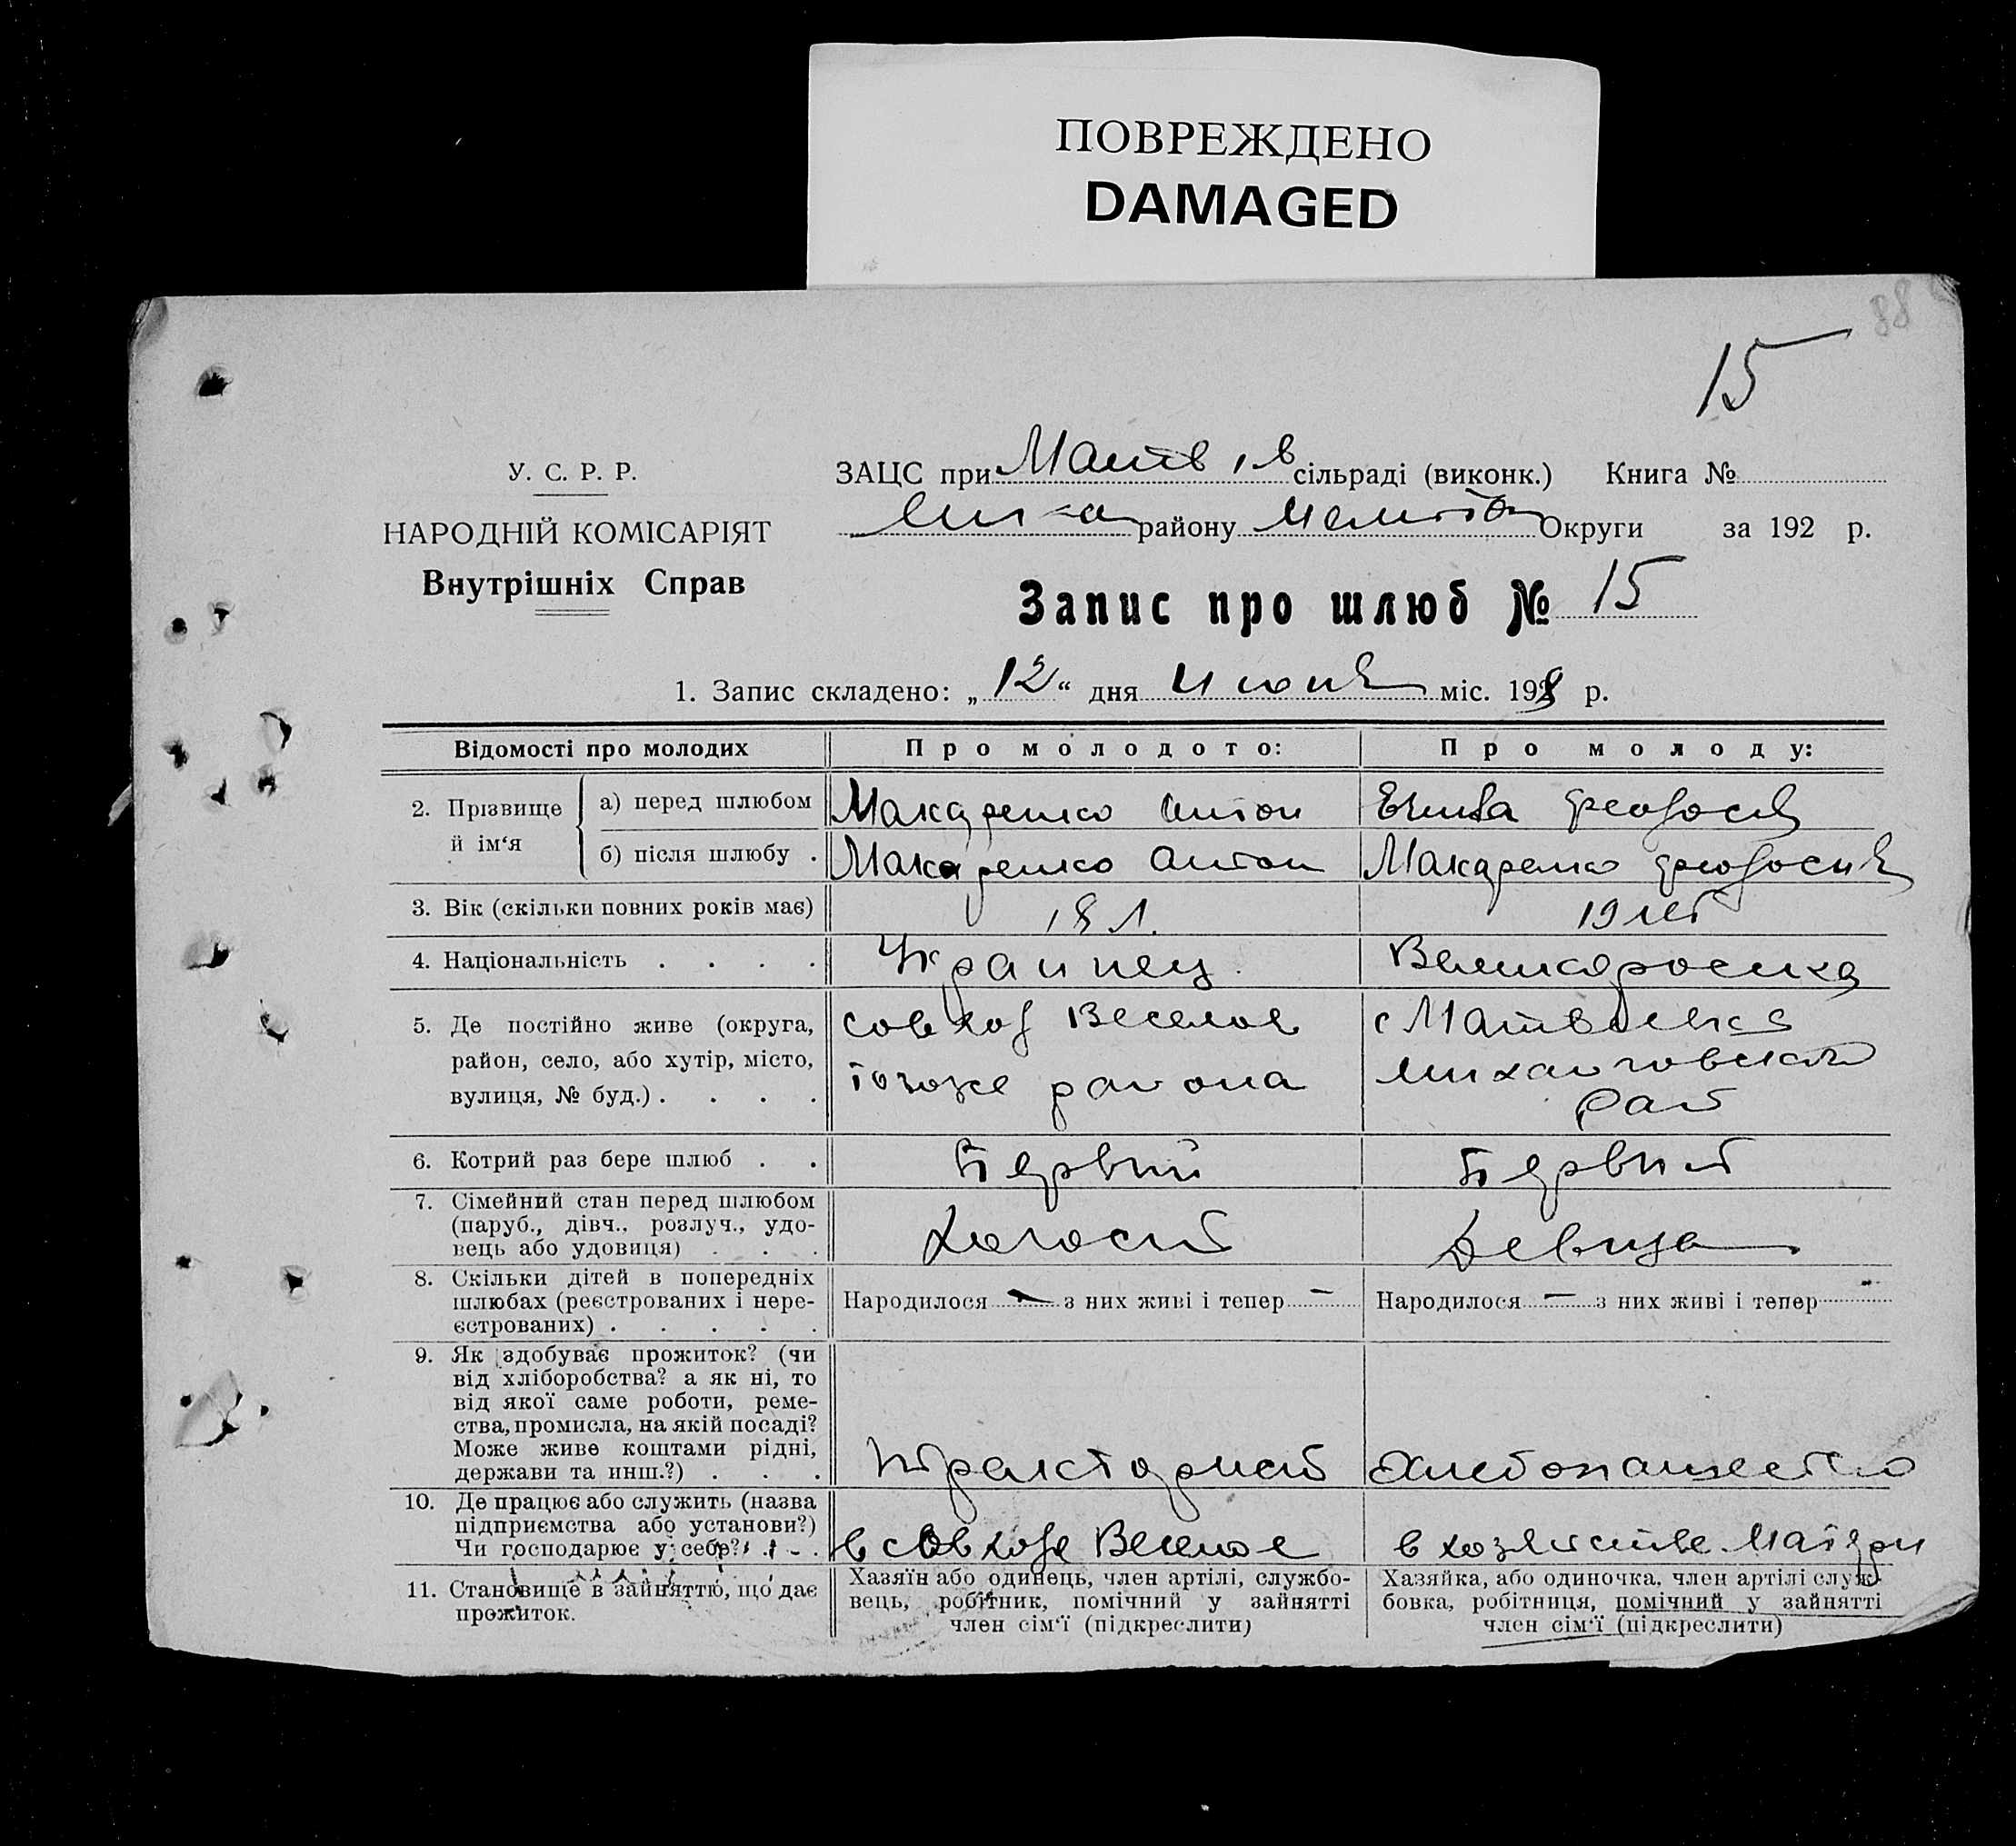 ПОВРЕЖДЕНО
DAMAGED
88
15
У. С. Р. Р.
НАРОДНІЙ КОМІСАРІЯТ
Внутрішніх Справ
ЗАЦС при Матв сільраді (виконк.) Книга №
району Мелитоп Округи за 192 р.
Запис про шлюб № 15
1. Запис складено: „12“ дня Июня міс. 1928 р.
Відомості про молодих
Про молодого:
Про молоду:
2. Прізвище й ім‘я
а) перед шлюбом
Макаренко Антон
Феодосия
б) після шлюбу .
Макаренко Антон
Макаренко Феодосия
3. Вік (скільки повних років має)
18 л.
19 лет
4. Національність . . . .
Украинец
Великороска
5. Де постійно живе (округа,
район, село, або хутір, місто,
вулиця, № буд.) . . . .
совхоз Веселое
тогоже района
с Матвеевка
Михайловский
Рай
6. Котрий раз бере шлюб . .
Первий
Первий
7. Сімейний стан перед шлюбом
(паруб., дівч., розлуч., удо-
вець або удовиця) . . .
Холостой
Девица
8. Скільки дітей в попередніх
шлюбах (реєстрованих і нере-
єстрованих) . . . . .
Народилося — з них живі і тепер —
Народилося — з них живі і тепер —
9. Як здобуває прожиток? (чи
від хліборобства? а як ні, то
від якої саме роботи, реме-
ства, промисла, на якій посаді?
Може живе коштами рідні,
держави та инш.?) . . .
Тракторист
Хлебопашество
10. Де працює або служить (назва
підприємства або установи?)
Чи господарює у себе? . . .
в совхозе Веселое
в хозяистве Матери
11. Становище в зайняттю, що дає
прожиток.
Хазяїн або одинець, член артілі, службо-
вець, робітник, помічний у зайнятті
член сім‘ї (підкреслити)
Хазяйка, або одиночка, член артілі служ-
бовка, робітниця, помічний у зайнятті
член сім‘ї (підкреслити)